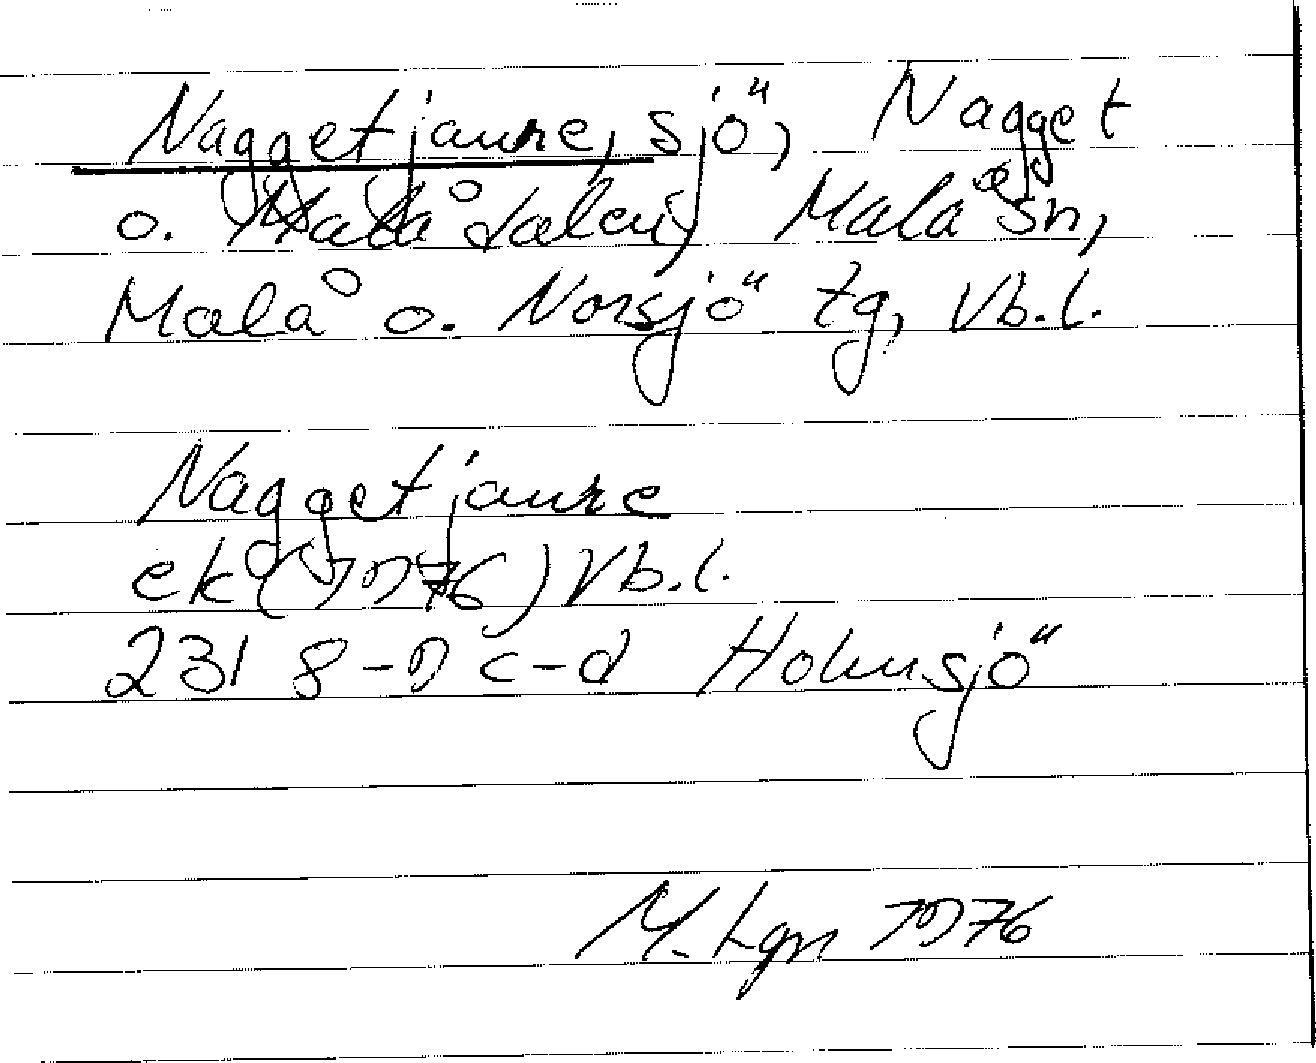 Naggetjaure, sjö, Nagget
o. Malådalen, Malå sn,
Malå o. Norsjö tg, Vb.l.
Naggetjaure
ek (1976) Vb.l.
23I 8-9 c-d Holmsjö
M. Lgn 1976